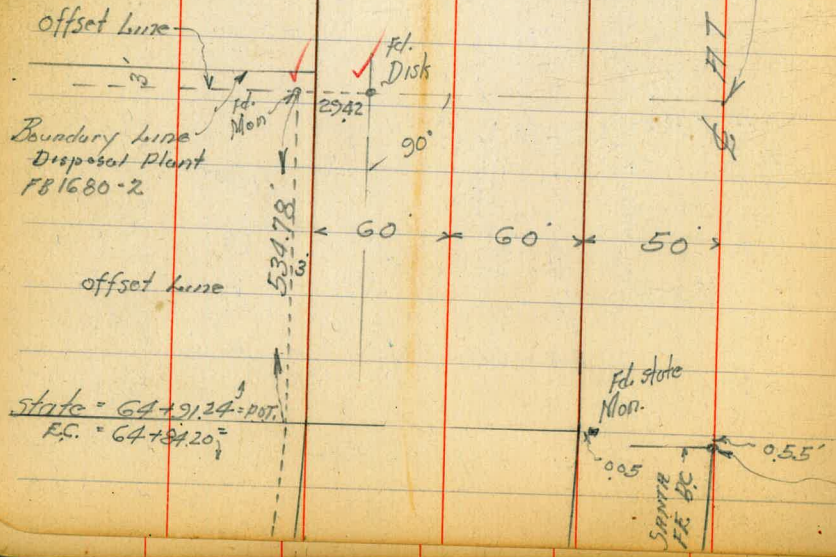 offset Line
3'
Fd.
Disk
Fd.
Mon
29.42
90°
Boundary Line
Disposal Plant
FB 1680-2
534.78'
3'
60'
60'
50'
offset Line
Fd. state
Mon.
state = 64+91.24 = P.O.T.
E.C. = 64+84.20 =
0.05
0.55'
SANTA
FE B.C.